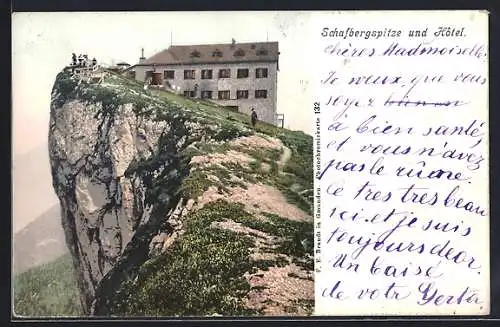 Schafbergspitze und Hôtel.
chères Mademoiselle.
Je veux, que vous
soyez bien
à bien santé
et vous n'avez
pas le rûme.
très tres beau
ici. et je suis
toujours dear.
Un baisé
de votr Gerta
F. E. Brandt in Gmunden. Photochromiekarte 132